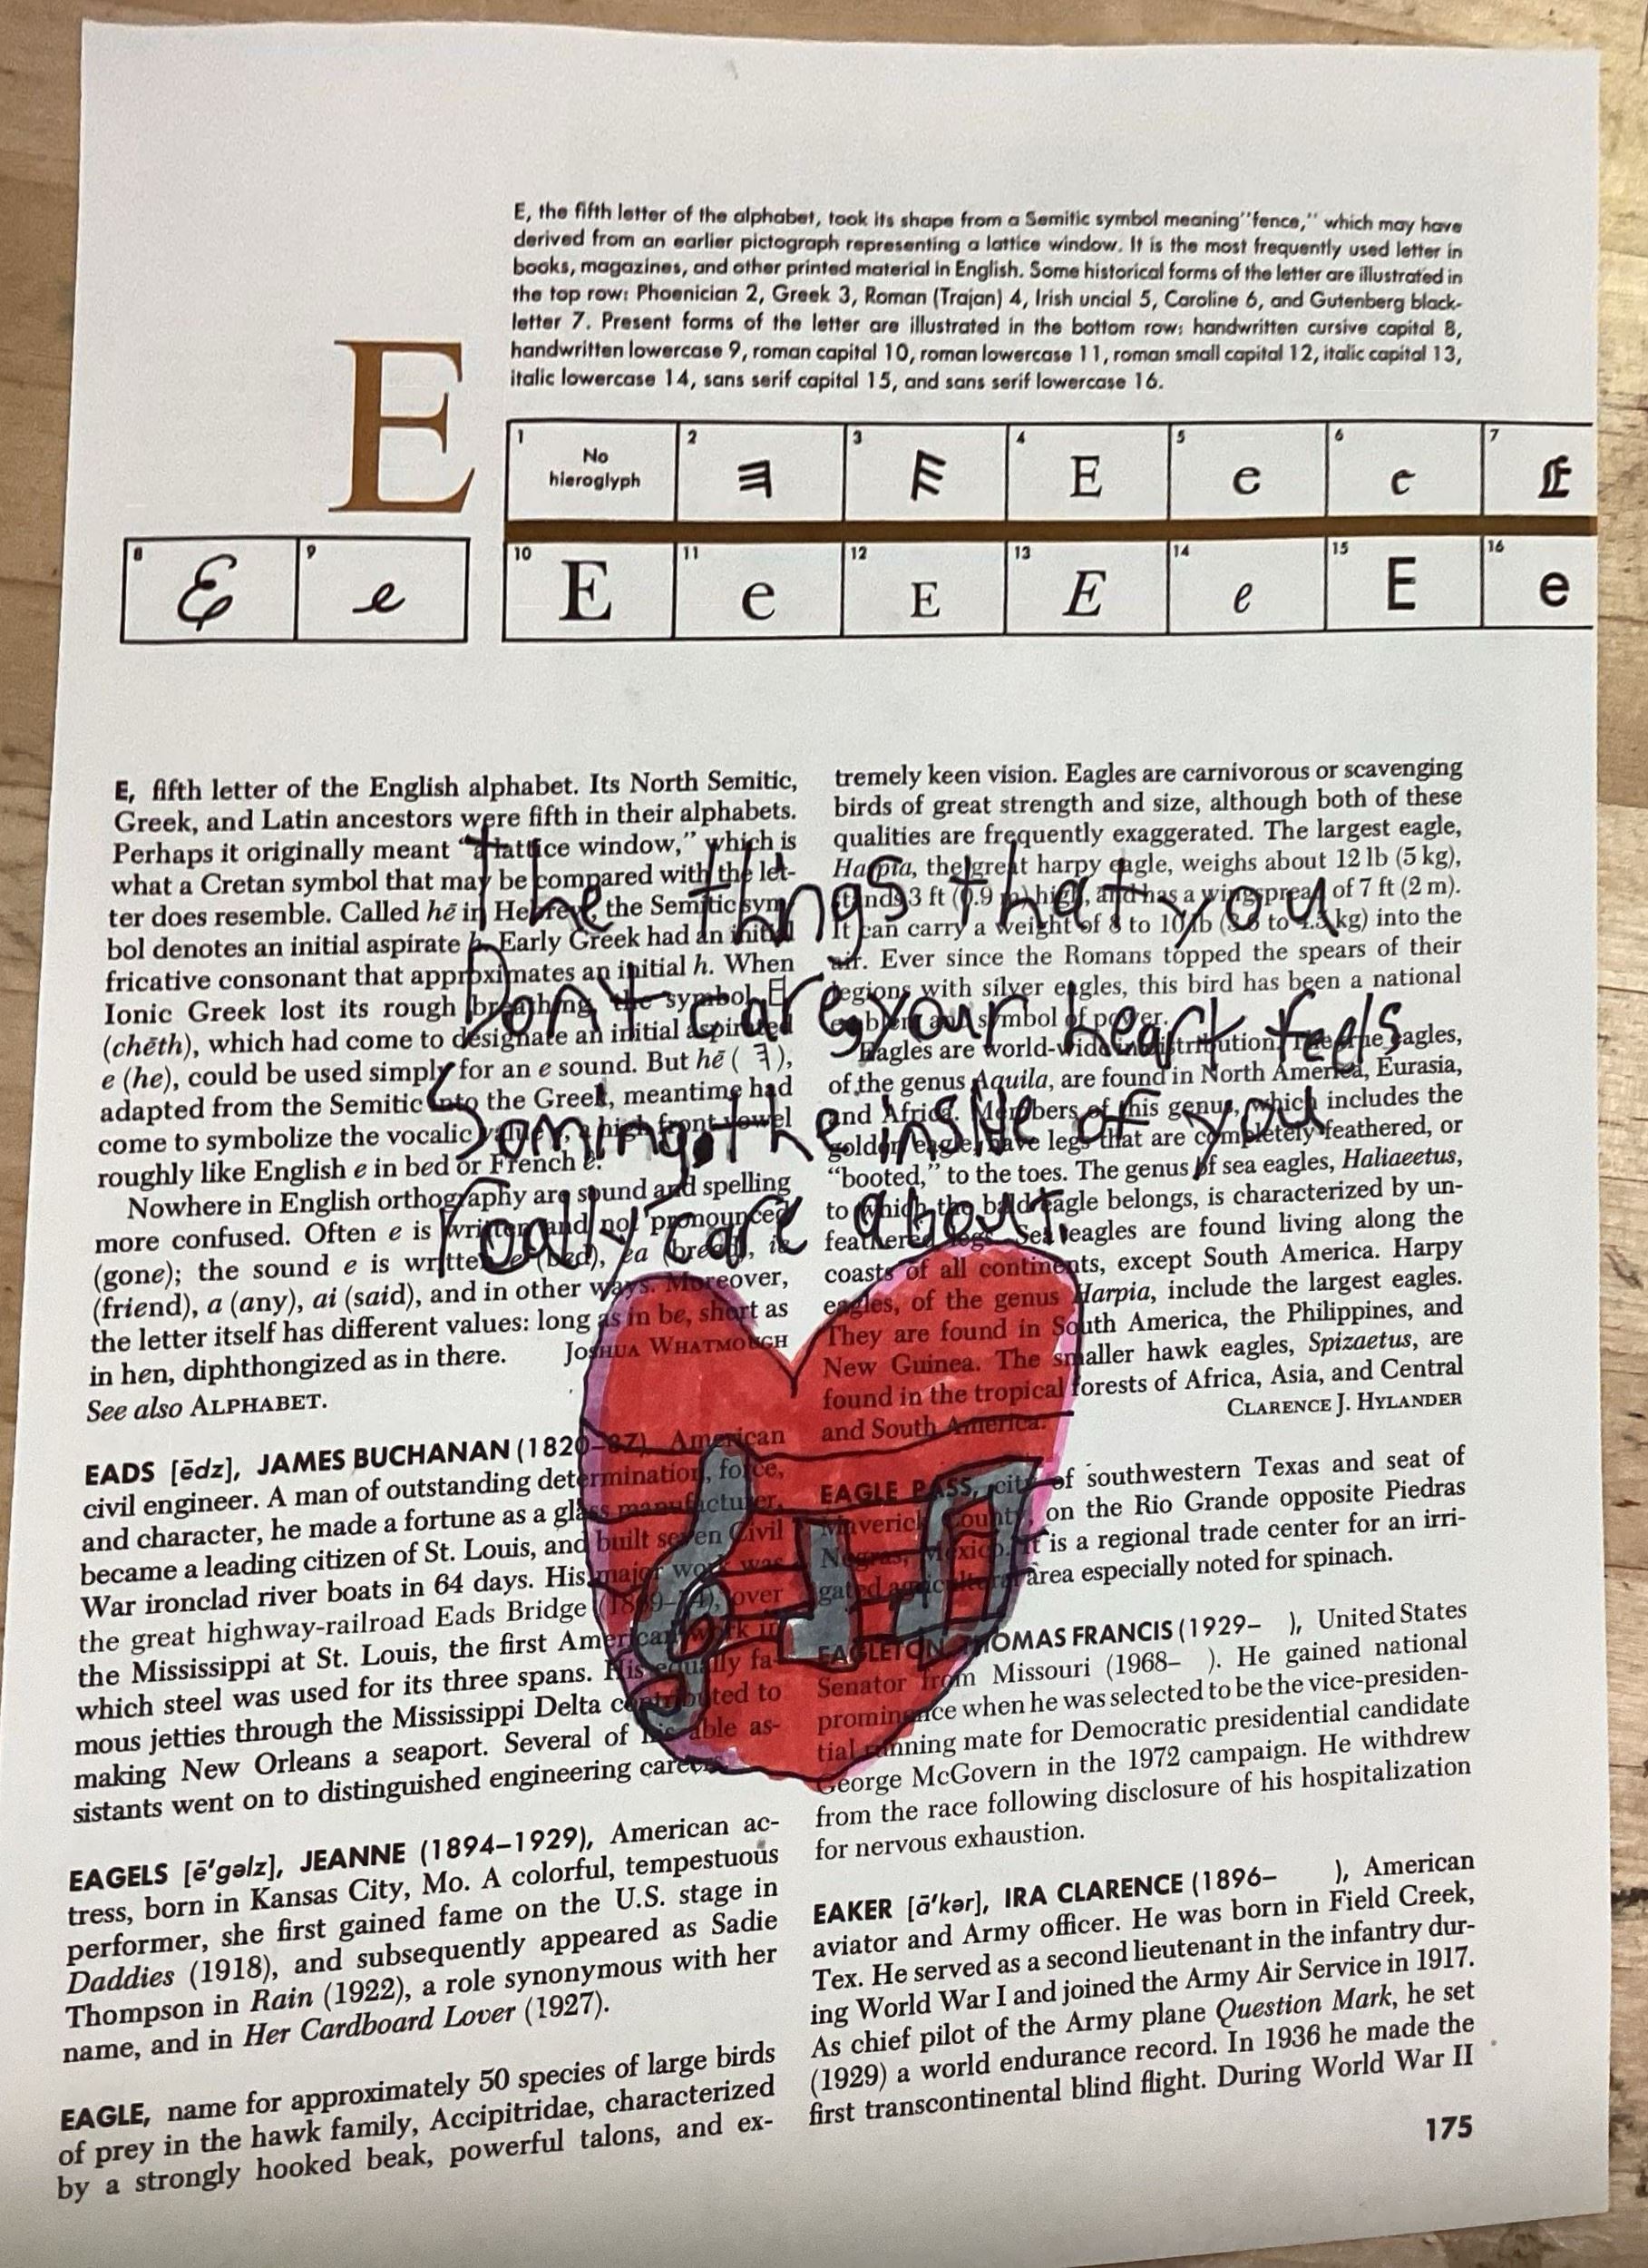 E, the fifth letter of the alphabet, took its shape from a Semitic symbol meaning "fence," which may have
derived from an earlier pictograph representing a lattice window. It is the most frequently used letter in
books, magazines, and other printed material in English. Some historical forms of the letter are illustrated in
the top row: Phoenician 2, Greek 3, Roman (Trajan) 4, Irish uncial 5, Caroline 6, and Gutenberg black-
letter 7. Present forms of the letter are illustrated in the bottom row: handwritten cursive capital 8,
handwritten lowercase 9, roman capital 10, roman lowercase 11, roman small capital 12, italic capital 13,
italic lowercase 14, sans serif capital 15, and sans serif lowercase 16.
E
1 No hieroglyph 2 3 4 E 5 e 6 e 7 E
8 E 9 e 10 E 11 e 12 E 13 E 14 e 15 E 16 e
the things that you
Dont care your heart feels
Soming. the inside of you
really care about.
E, fifth letter of the English alphabet. Its North Semitic,
Greek, and Latin ancestors were fifth in their alphabets.
Perhaps it originally meant "a lattice window," which is
what a Cretan symbol that may be compared with the let-
ter does resemble. Called hē in Hebrew, the Semitic sym-
bol denotes an initial aspirate h. Early Greek had an initial
fricative consonant that approximates an initial h. When
Ionic Greek lost its rough breathing, the symbol
(chēth), which had come to designate an initial aspirated
e (he), could be used simply for an e sound. But hē ( ヨ ),
adapted from the Semitic into the Greek, meantime had
come to symbolize the vocalic a high front vowel
roughly like English e in bed or French é.
Nowhere in English orthography are sound and spelling
more confused. Often e is written and not pronounced
(gone); the sound e is written e (bed), ea (bread), ie
(friend), a (any), ai (said), and in other ways. Moreover,
the letter itself has different values: long as in be, short as
in hen, diphthongized as in there. JOSHUA WHATMOUGH
See also ALPHABET.
EADS [ēdz], JAMES BUCHANAN (1820–87), American
civil engineer. A man of outstanding determination, force,
and character, he made a fortune as a glass manufacturer,
became a leading citizen of St. Louis, and built seven Civil
War ironclad river boats in 64 days. His major work was
the great highway-railroad Eads Bridge (1869–74), over
the Mississippi at St. Louis, the first American work in
which steel was used for its three spans. His equally fa-
mous jetties through the Mississippi Delta contributed to
making New Orleans a seaport. Several of his able as-
sistants went on to distinguished engineering careers.
EAGELS [ē'gəlz], JEANNE (1894–1929), American ac-
tress, born in Kansas City, Mo. A colorful, tempestuous
performer, she first gained fame on the U.S. stage in
Daddies (1918), and subsequently appeared as Sadie
Thompson in Rain (1922), a role synonymous with her
name, and in Her Cardboard Lover (1927).
EAGLE, name for approximately 50 species of large birds
of prey in the hawk family, Accipitridae, characterized
by a strongly hooked beak, powerful talons, and ex-
tremely keen vision. Eagles are carnivorous or scavenging
birds of great strength and size, although both of these
qualities are frequently exaggerated. The largest eagle,
Harpia, the great harpy eagle, weighs about 12 lb (5 kg),
stands 3 ft (0.9 m) high, and has a wingspread of 7 ft (2 m).
It can carry a weight of 8 to 10 lb (3.6 to 4.5 kg) into the
air. Ever since the Romans topped the spears of their
legions with silver eagles, this bird has been a national
emblem and symbol of power.
Eagles are world-wide in distribution. The true eagles,
of the genus Aquila, are found in North America, Eurasia,
and Africa. Members of this genus, which includes the
golden eagle, have legs that are completely feathered, or
"booted," to the toes. The genus of sea eagles, Haliaeetus,
to which the bald eagle belongs, is characterized by un-
feathered legs. Sea eagles are found living along the
coasts of all continents, except South America. Harpy
eagles, of the genus Harpia, include the largest eagles.
They are found in South America, the Philippines, and
New Guinea. The smaller hawk eagles, Spizaetus, are
found in the tropical forests of Africa, Asia, and Central
and South America. CLARENCE J. HYLANDER
EAGLE PASS, city of southwestern Texas and seat of
Maverick County, on the Rio Grande opposite Piedras
Negras, Mexico. It is a regional trade center for an irri-
gated agricultural area especially noted for spinach.
EAGLETON, THOMAS FRANCIS (1929– ), United States
Senator from Missouri (1968– ). He gained national
prominence when he was selected to be the vice-presiden-
tial running mate for Democratic presidential candidate
George McGovern in the 1972 campaign. He withdrew
from the race following disclosure of his hospitalization
for nervous exhaustion.
EAKER [ā'kər], IRA CLARENCE (1896– ), American
aviator and Army officer. He was born in Field Creek,
Tex. He served as a second lieutenant in the infantry dur-
ing World War I and joined the Army Air Service in 1917.
As chief pilot of the Army plane Question Mark, he set
(1929) a world endurance record. In 1936 he made the
first transcontinental blind flight. During World War II
175